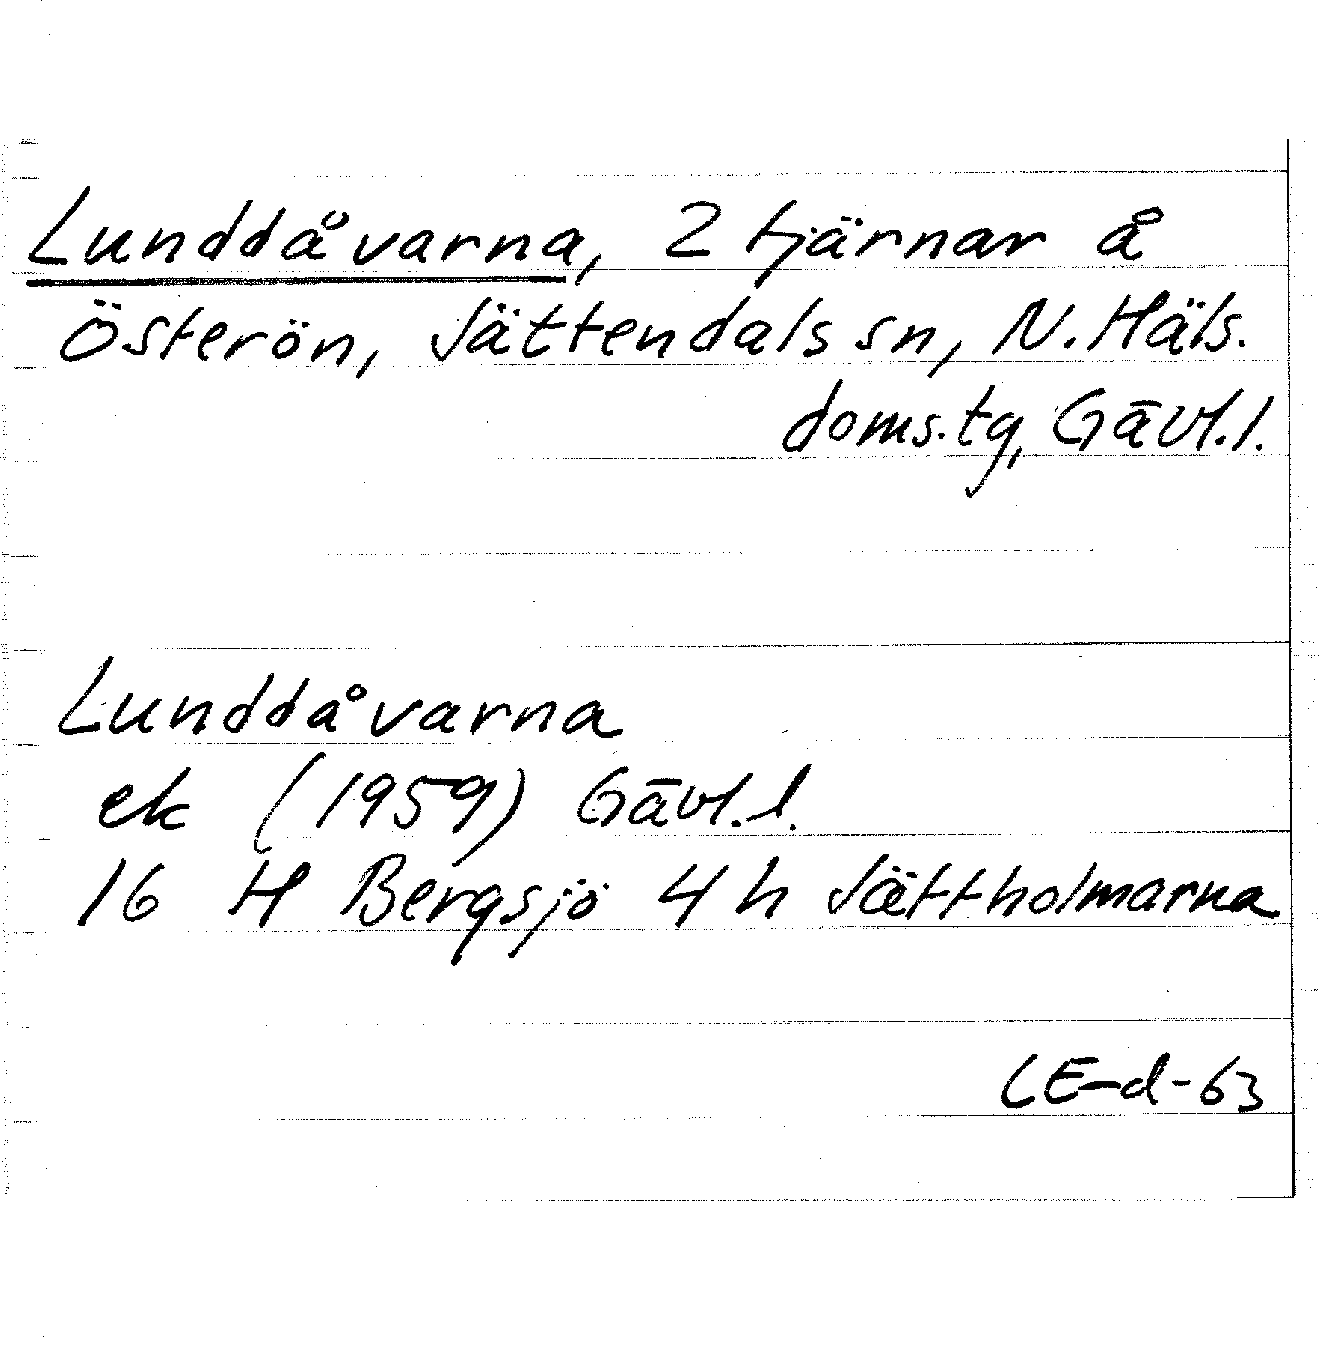 Lunddåvarna, 2 tjärnar å
Österön, Jättendals sn, N. Häls.
doms.tg, Gävl.l.
Lunddåvarna
ek (1959) Gävl.l.
16 H Bergsjö 4 h Jättholmarna
LE-d-63